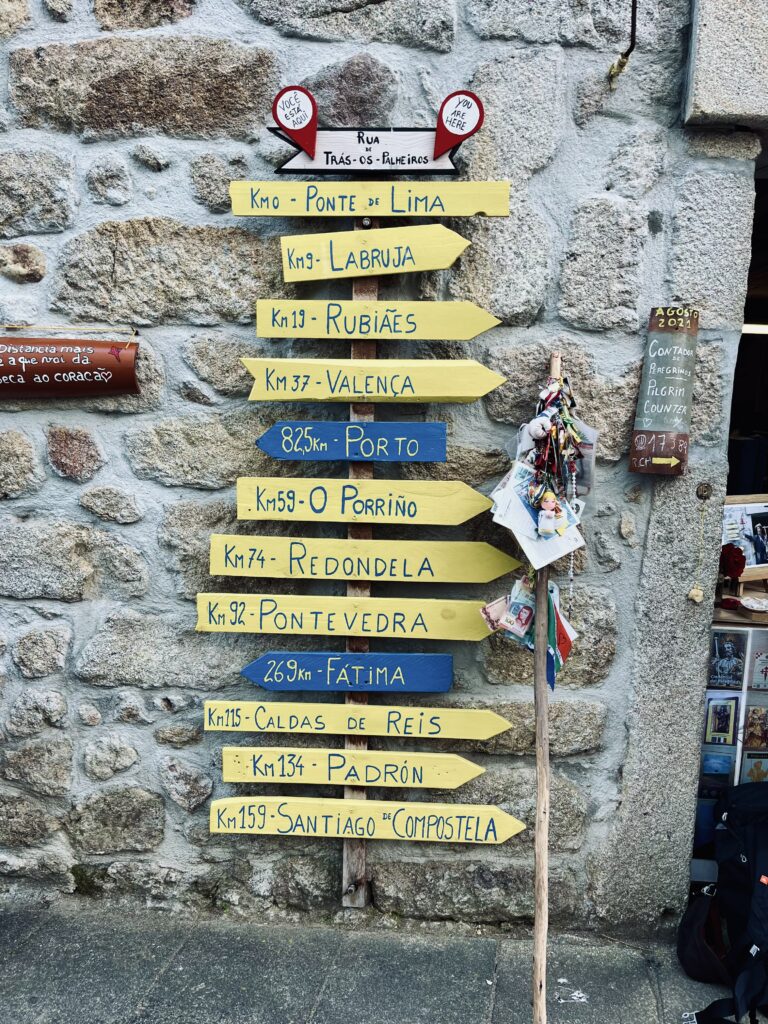 VOCÊ
ESTÁ
AQUI
YOU
ARE
HERE
RUA
DE
TRÁS-OS-PALHEIROS
KM0 - PONTE DE LIMA
KM9 - LABRUJA
KM19 - RUBIÃES
KM37 - VALENÇA
82,5KM - PORTO
KM59 - O PORRIÑO
KM74 - REDONDELA
KM92 - PONTEVEDRA
269KM - FÁTIMA
KM115 - CALDAS DE REIS
KM134 - PADRÓN
KM159 - SANTIAGO DE COMPOSTELA
DISTANCIA MAIS
A QUE VAI DA
AO CORACÃO
AGOSTO
2021
CONTADOR
DE
PEREGRINOS
PILGRIM
COUNTER